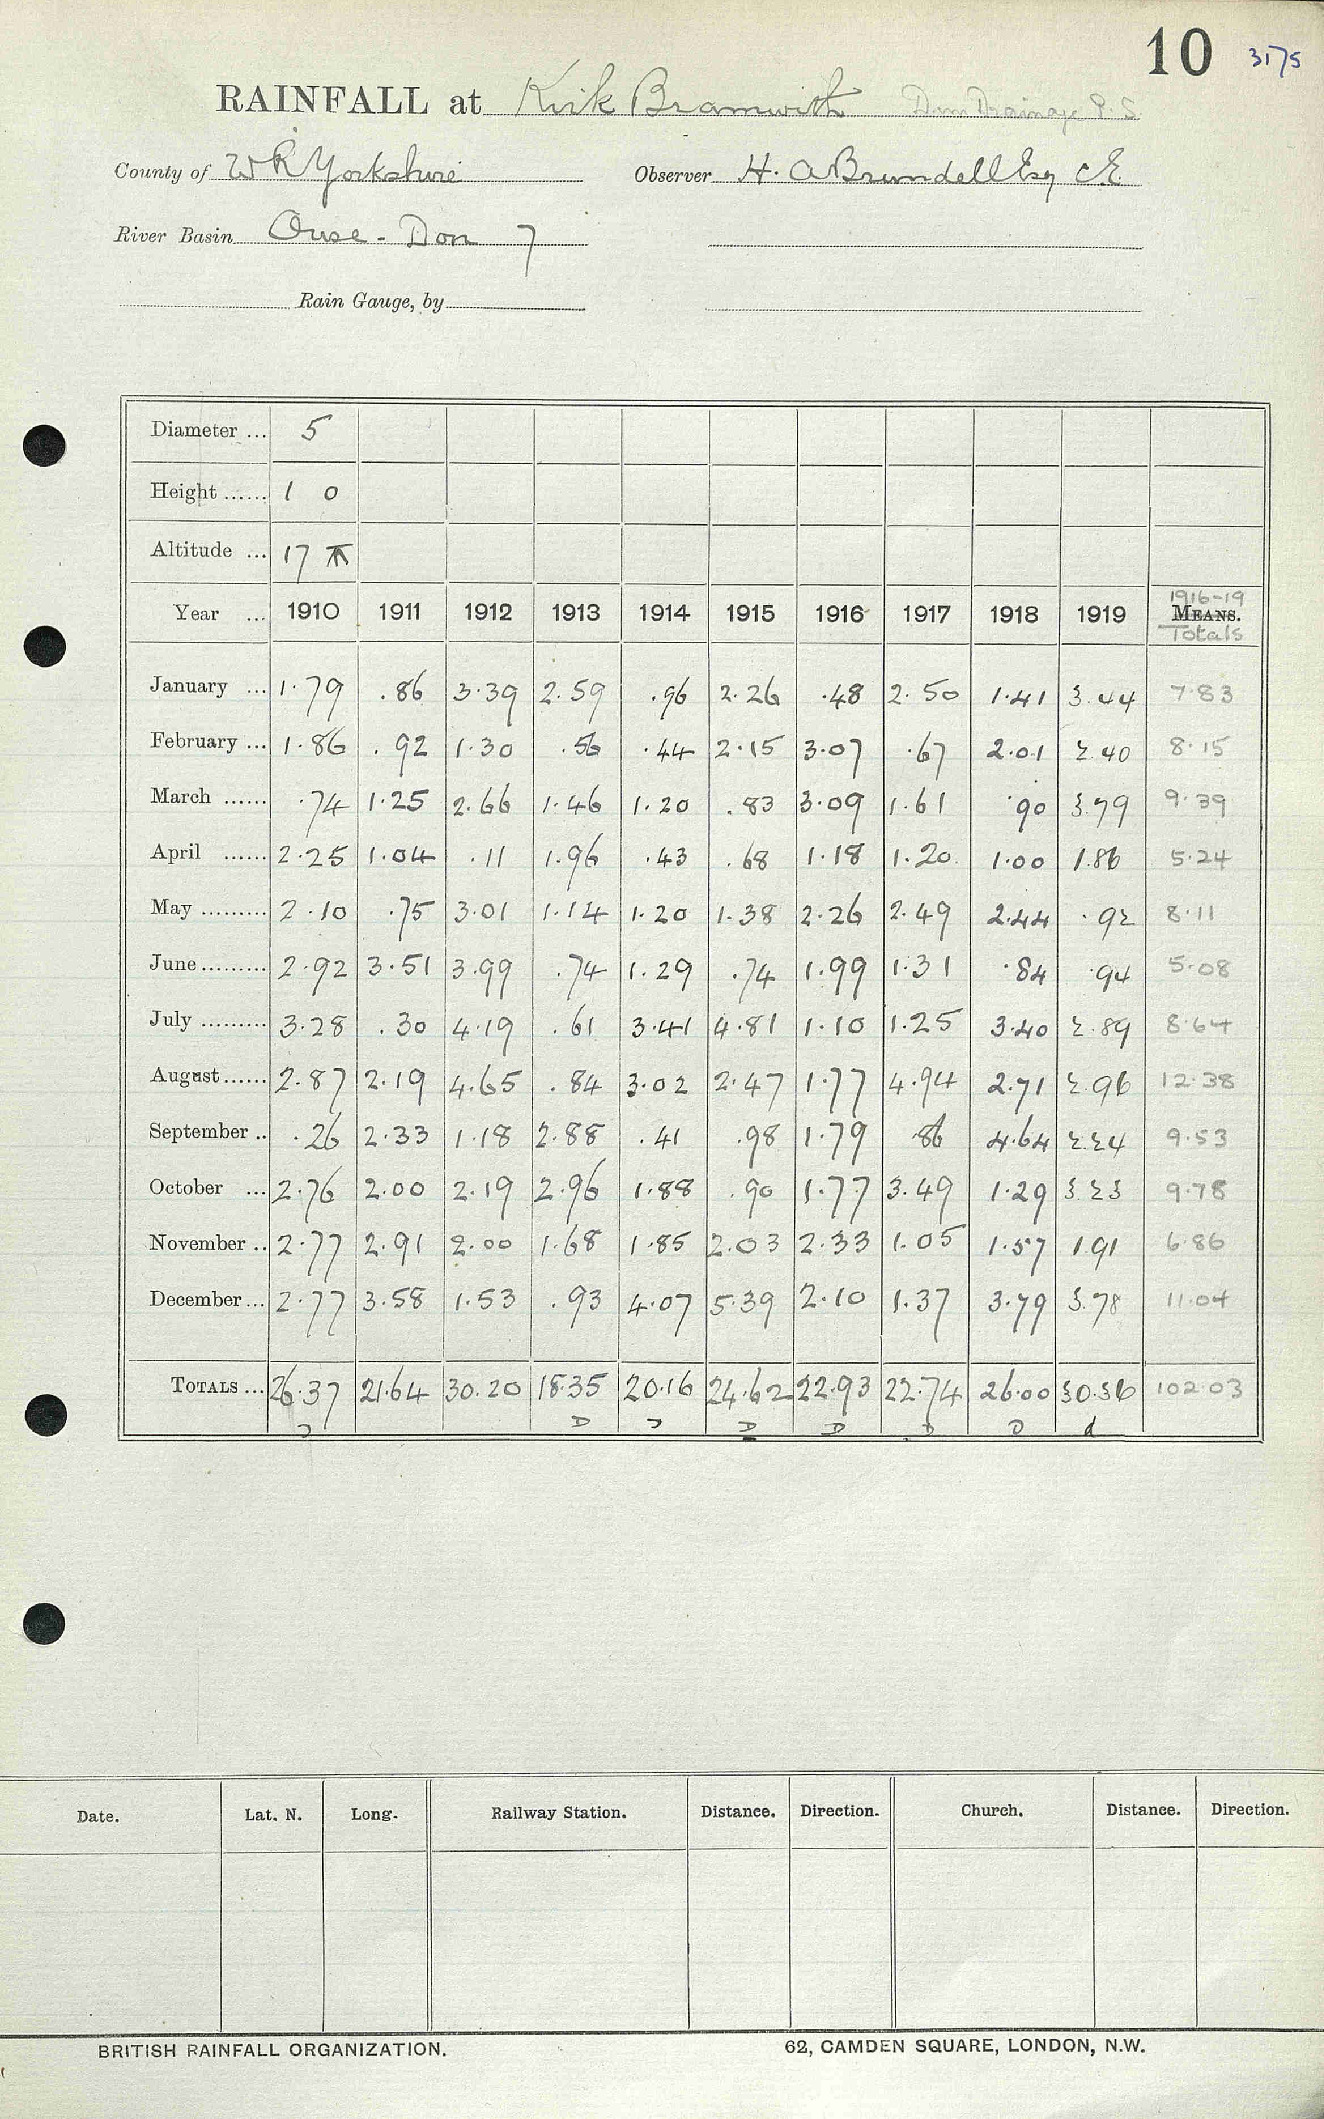 10 3175
RAINFALL at Kirk Bramwith Dun Drainage P.S.
County of W R Yorkshire Observer H. A Brundell Esq C.E
River Basin Ouse - Don 7
Rain Gauge, by
Diameter ... 5
Height ...... 1 0
Altitude ... 17
Year ... 1910 1911 1912 1913 1914 1915 1916 1917 1918 1919 1916-19 MEANS. Totals
January ... 1.79 .86 3.39 2.59 .96 2.26 .48 2.50 1.41 3.44 7.83
February ... 1.86 .92 1.30 .56 .44 2.15 3.07 .67 2.01 2.40 8.15
March ...... .74 1.25 2.66 1.46 1.20 .83 3.09 1.61 .90 3.79 9.39
April ...... 2.25 1.04 .11 1.96 .43 .68 1.18 1.20 1.00 1.86 5.24
May ......... 2.10 .75 3.01 1.14 1.20 1.38 2.26 2.49 2.44 .92 8.11
June ......... 2.92 3.51 3.99 .74 1.29 .74 1.99 1.31 .84 .94 5.08
July ......... 3.28 .30 4.19 .61 3.41 4.81 1.10 1.25 3.40 2.89 8.64
August ...... 2.87 2.19 4.65 .84 3.02 2.47 1.77 4.94 2.71 2.96 12.38
September .. .26 2.33 1.18 2.88 .41 .98 1.79 .86 4.64 2.24 9.53
October ... 2.76 2.00 2.19 2.96 1.88 .90 1.77 3.49 1.29 3.23 9.78
November .. 2.77 2.91 2.00 1.68 1.85 2.03 2.33 1.05 1.57 1.91 6.86
December ... 2.77 3.58 1.53 .93 4.07 5.39 2.10 1.37 3.79 3.78 11.04
TOTALS ... 26.37 21.64 30.20 18.35 20.16 24.62 22.93 22.74 26.00 30.36 102.03
D D D D D D d
Date. Lat. N. Long. Railway Station. Distance. Direction. Church. Distance. Direction.
BRITISH RAINFALL ORGANIZATION. 62, CAMDEN SQUARE, LONDON, N.W.